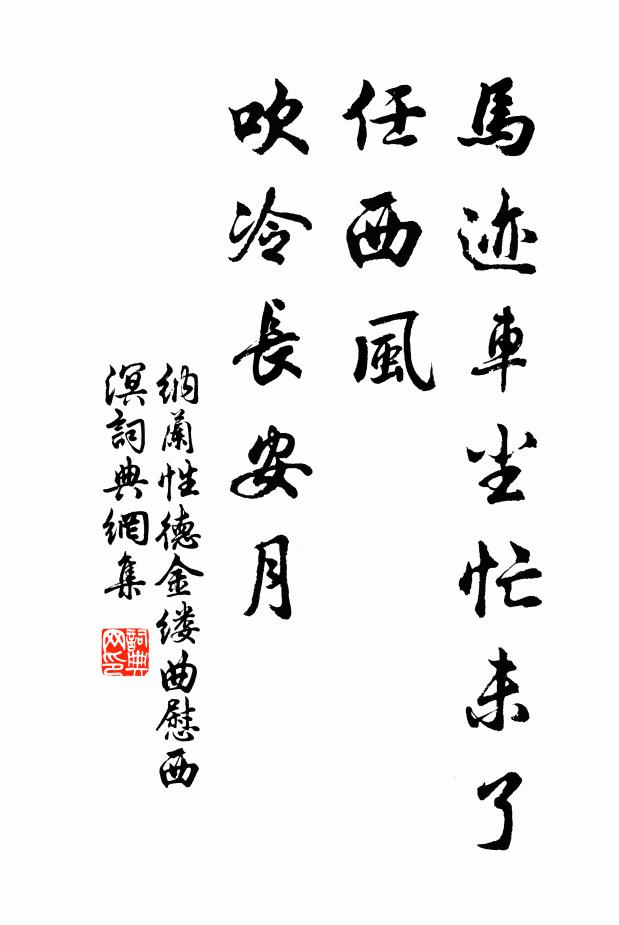 馬迹車尘忙未了
任西風
吹冷長安月
納蘭性德金缕曲慰西
溟詞典網集
詞典
网印